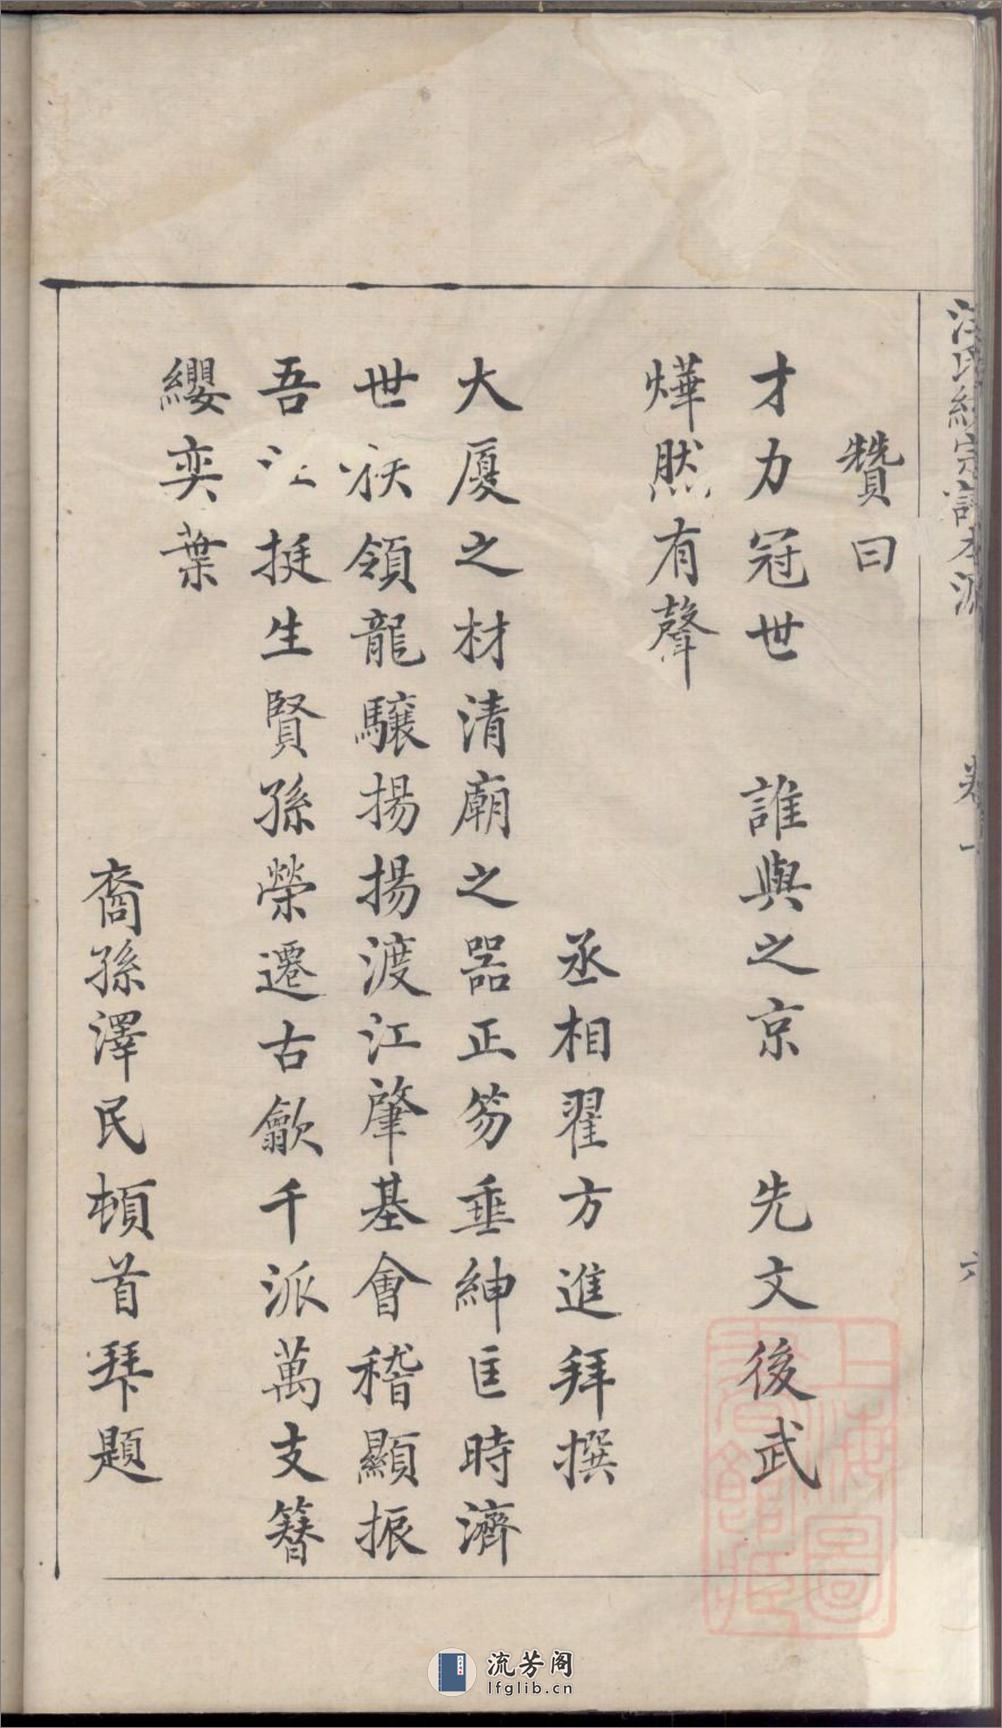 汪氏統宗譜本源 卷一 六
贊曰
才力冠世 誰與之京 先文後武
燁然有聲
丞相翟方進拜撰
大廈之材清廟之器正笏垂紳匡時濟
世族領龍驤揚揚渡江肇基會稽顯振
吾江挺生賢孫榮遷古歙千派萬支簪
纓奕葉
裔孫澤民頓首拜題
上海圖書館藏
流芳阁
lfglib.cn